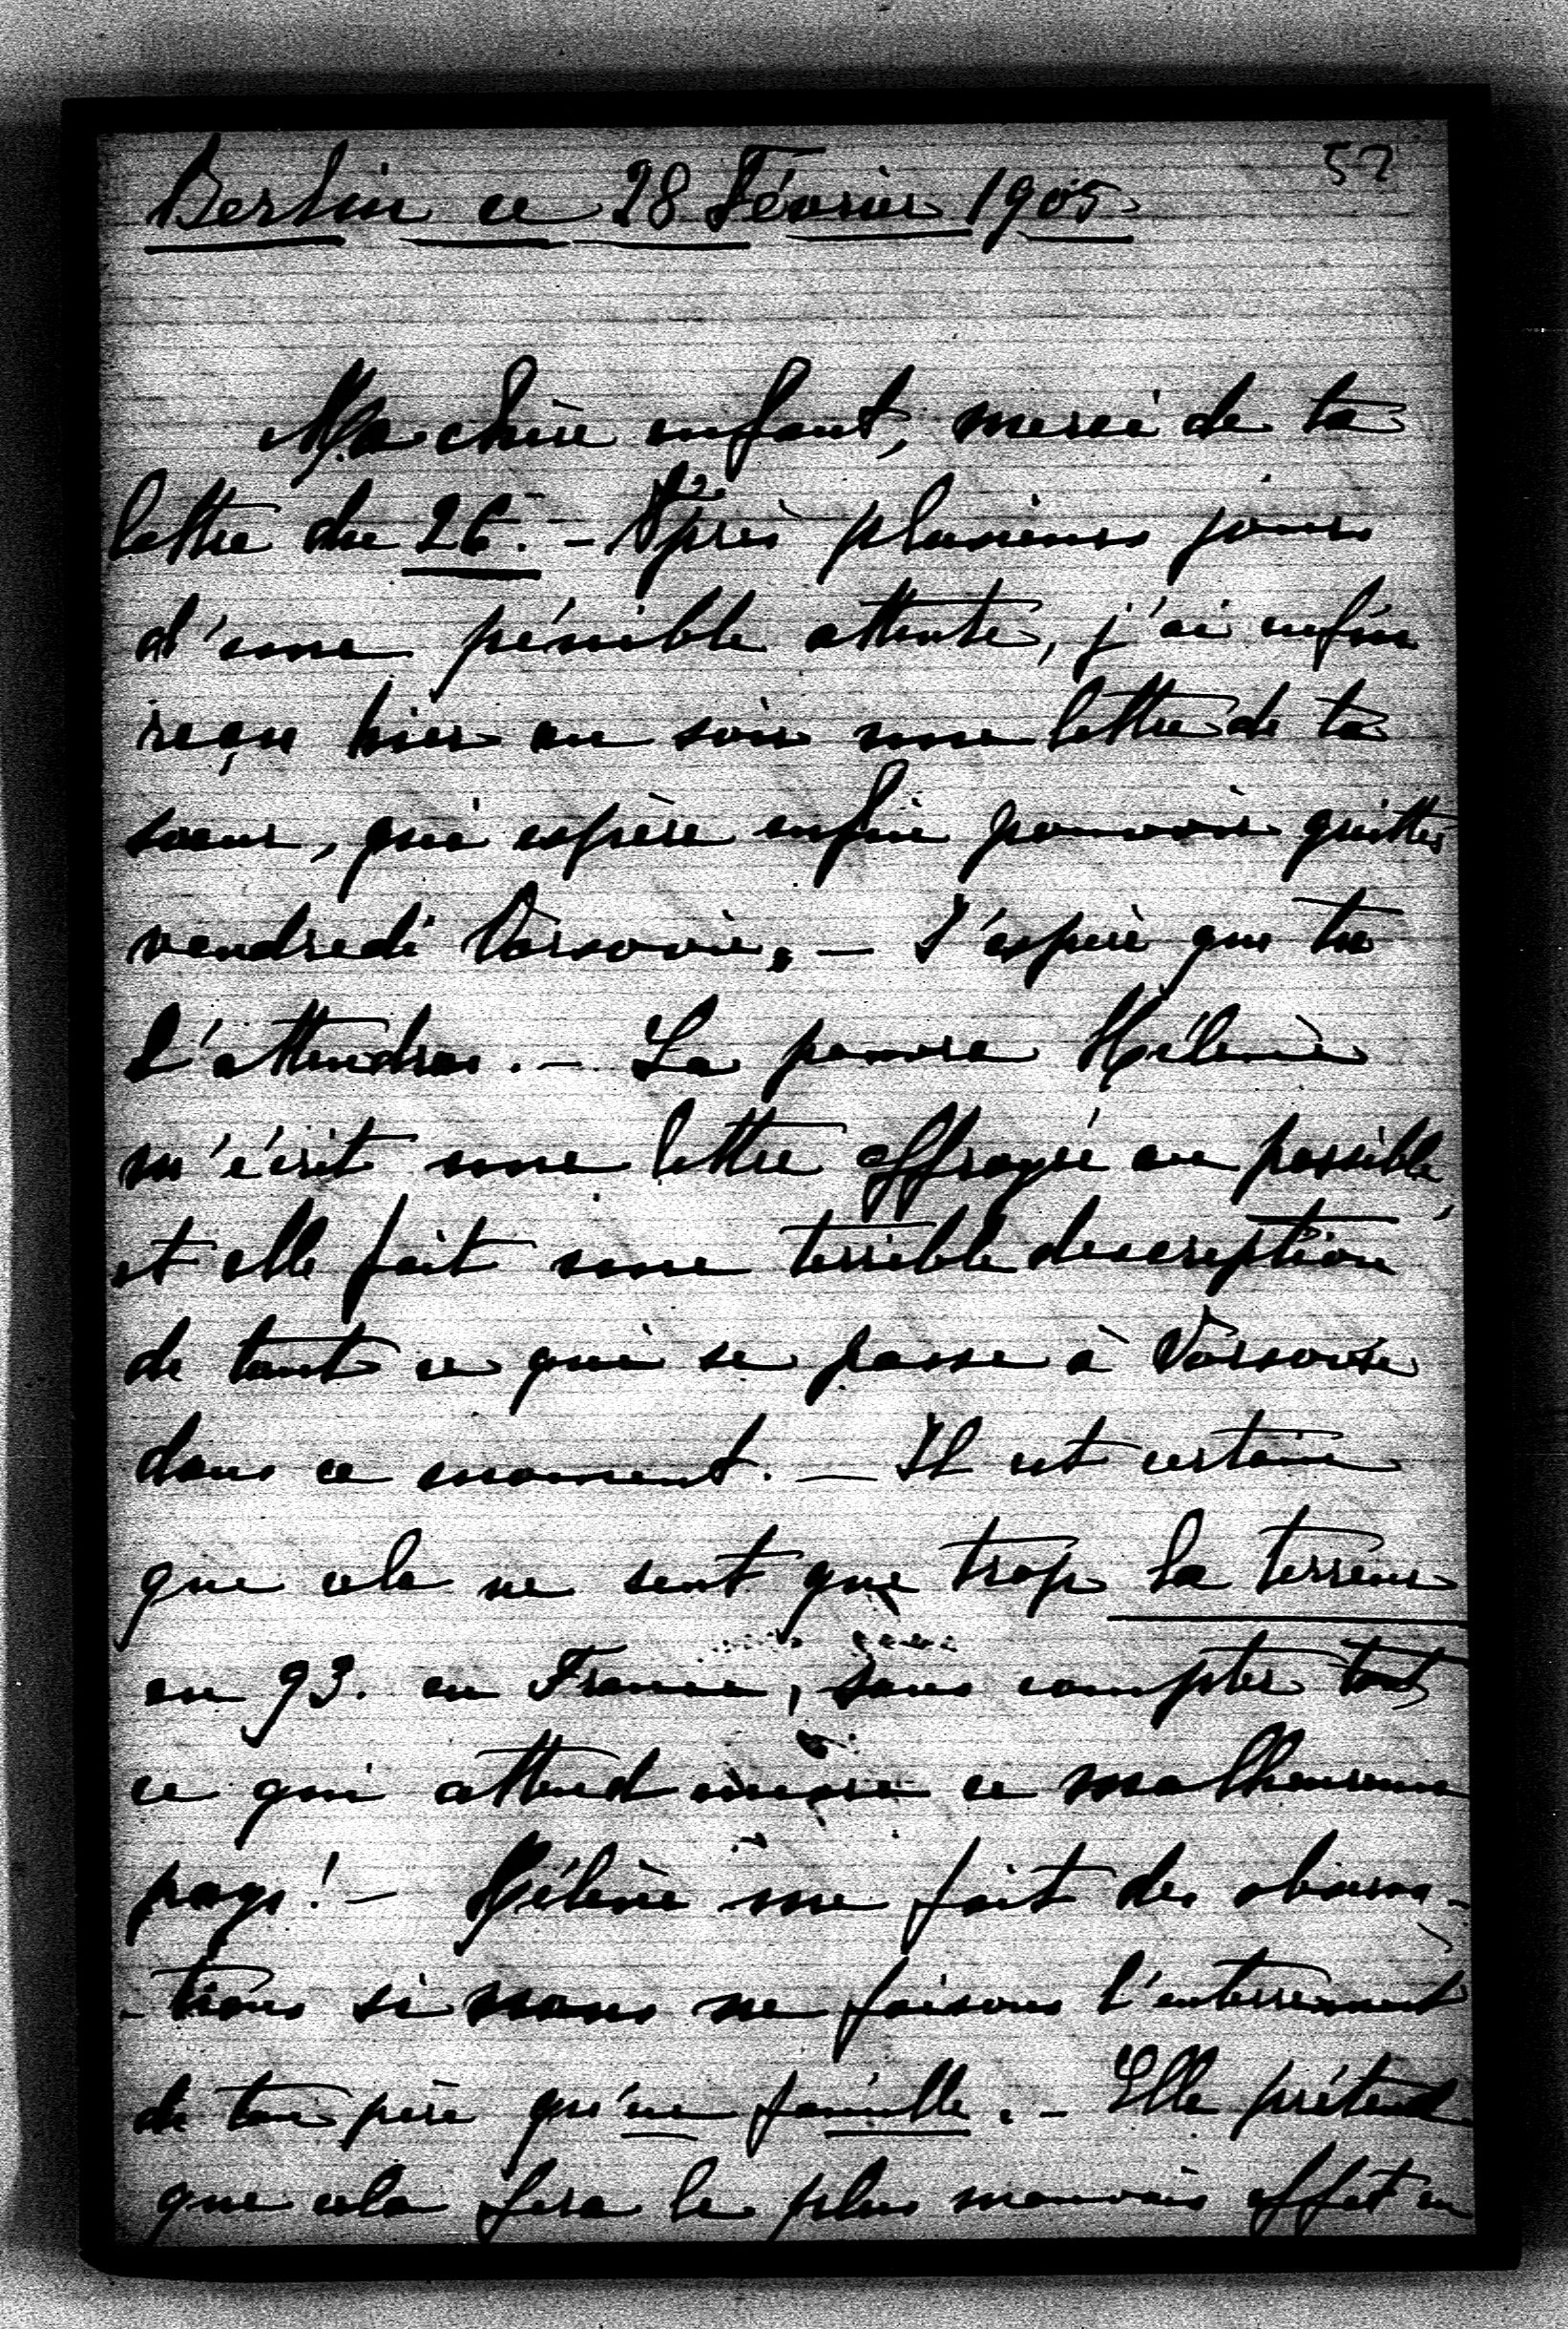 57
Berlin ce 28 Février 1905
Ma chère enfant, merci de ta
lettre du 26. - Après plusieurs jours
d'une pénible attente, j'ai enfin
reçu hier au soir une lettre de ta
sœur, qui espère enfin pouvoir quitter
vendredi Varsovie. - J'espère que tu
l'attendras. - La pauvre Hélène
m'écrit une lettre effrayée au possible,
et elle fait une terrible description
de tout ce qui se passe à Varsovie
dans ce moment. - Il est certain
que cela ne sent que trop la terreur
en 93. en France, sans compter tout
ce qui attend encore ce malheureux
pays! - Hélène me fait des observa-
-tions si nous ne faisons l'enterrement
de ton père qu'en famille. - Elle prétend
que cela fera le plus mauvais effet en